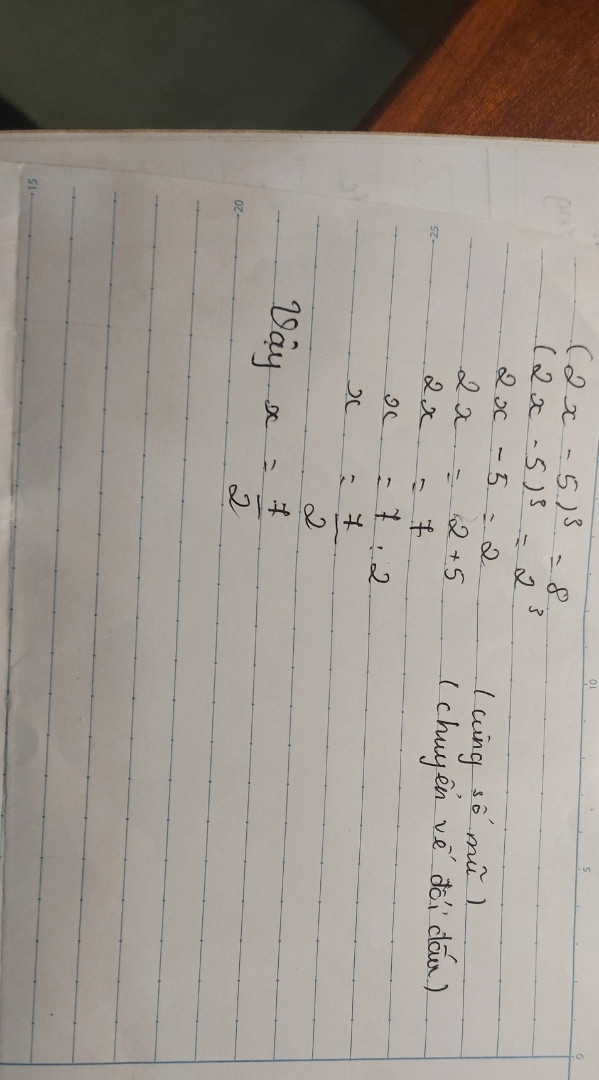 (2x - 5)³ = 8
(2x - 5)³ = 2³
2x - 5 = 2 (cùng số mũ)
2x = 2 + 5 (chuyển vế đổi dấu)
2x = 7
x = 7 : 2
x = 7/2
Vậy x = 7/2
15
20
25
10
5
0